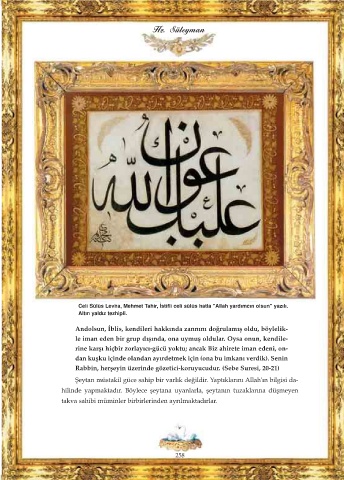 Hz. Süleyman
الله
Celi Sülüs Levha, Mehmet Tahir, İstifli celi sülüs hatla "Allah yardımcın olsun" yazılı.
Altın yaldız tezhipli.
Andolsun, İblis, kendileri hakkında zannını doğrulamış oldu, böylelik-
le iman eden bir grup dışında, ona uymuş oldular. Oysa onun, kendile-
rine karşı hiçbir zorlayıcı-gücü yoktu; ancak Biz ahirete iman edeni, on-
dan kuşku içinde olandan ayırdetmek için (ona bu imkanı verdik). Senin
Rabbin, herşeyin üzerinde gözetici-koruyucudur. (Sebe Suresi, 20-21)
Şeytan müstakil güce sahip bir varlık değildir. Yaptıklarını Allah'ın bilgisi da-
hilinde yapmaktadır. Böylece şeytana uyanlarla, şeytanın tuzaklarına düşmeyen
takva sahibi müminler birbirlerinden ayrılmaktadırlar.
258